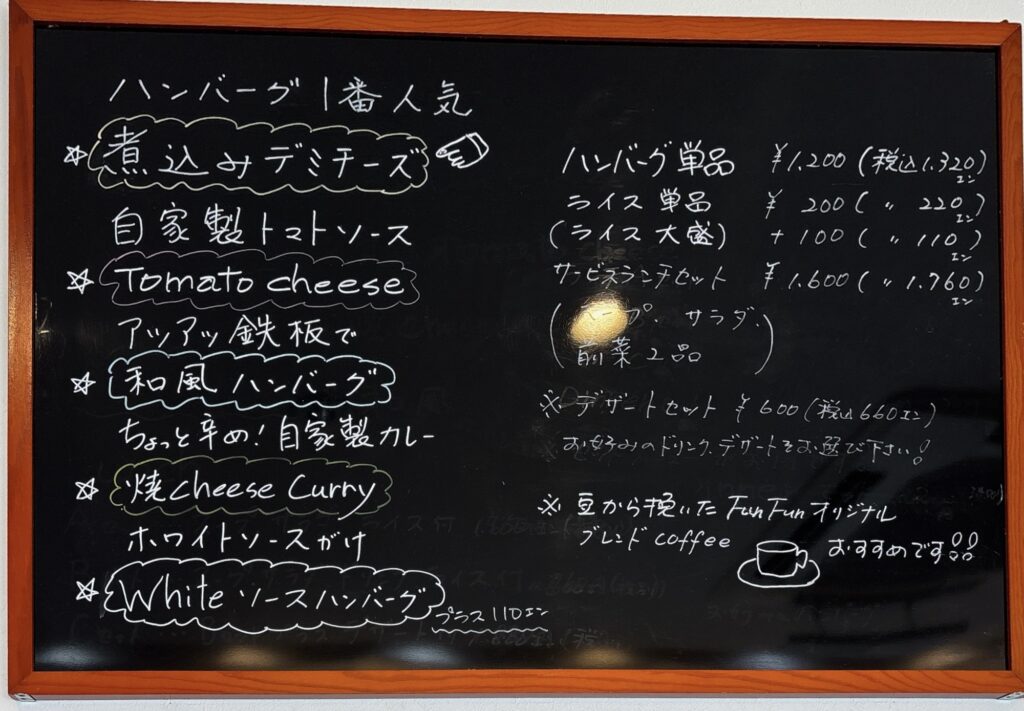 ハンバーグ1番人気
☆ 煮込みデミチーズ
自家製トマトソース
☆ Tomato cheese
アツアツ鉄板で
☆ 和風ハンバーグ
ちょっと辛め!自家製カレー
☆ 焼cheese Curry
ホワイトソースがけ
☆ Whiteソースハンバーグ
プラス110エン
ハンバーグ単品 ¥1.200(税込1.320エン)
ライス単品 ¥200(〃220エン)
(ライス大盛) +100(〃110エン)
サービスランチセット ¥1.600(〃1.760エン)
(ープ、サラダ、
前菜2品)
※デザートセット ¥600(税込660エン)
お好みのドリンク、デザートをお選び下さい!
※豆から挽いたFunFunオリジナル
ブレンドcoffee
おすすめです!!